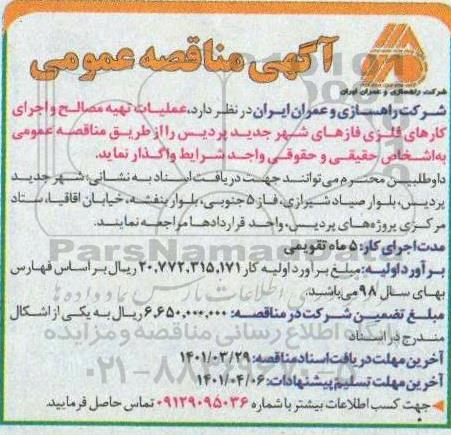 آگهی مناقصه عمومی
شرکت راهسازی و عمران ایران
شرکت راهسازی و عمران ایران در نظر دارد، عملیات تهیه مصالح و اجرای
کارهای فلزی فازهای شهر جدید پردیس را از طریق مناقصه عمومی
به اشخاص حقیقی و حقوقی واجد شرایط واگذار نماید.
داوطلبین محترم می‌توانند جهت دریافت اسناد به نشانی: شهر جدید
پردیس، بلوار صیاد شیرازی، فاز ۵ جنوبی، بلوار بنفشه، خیابان اقاقیا، ستاد
مرکزی پروژه‌های پردیس، واحد قراردادها مراجعه نمایند.
مدت اجرای کار: ۵ ماه تقویمی
برآورد اولیه: مبلغ برآورد اولیه کار ۲۰.۷۷۲.۳۱۵.۱۷۱ ریال بر اساس فهارس
بهای سال ۹۸ می‌باشد.
مبلغ تضمین شرکت در مناقصه: ۶.۶۵۰.۰۰۰.۰۰۰ ریال به یکی از اشکال
مندرج در اسناد
آخرین مهلت دریافت اسناد مناقصه: ۱۴۰۱/۰۳/۲۹
آخرین مهلت تسلیم پیشنهادات: ۱۴۰۱/۰۴/۰۶
جهت کسب اطلاعات بیشتر با شماره ۰۹۱۲۹۰۹۵۰۳۶ تماس حاصل فرمایید.
ParsNamadData
پایگاه اطلاع رسانی مناقصه و مزایده